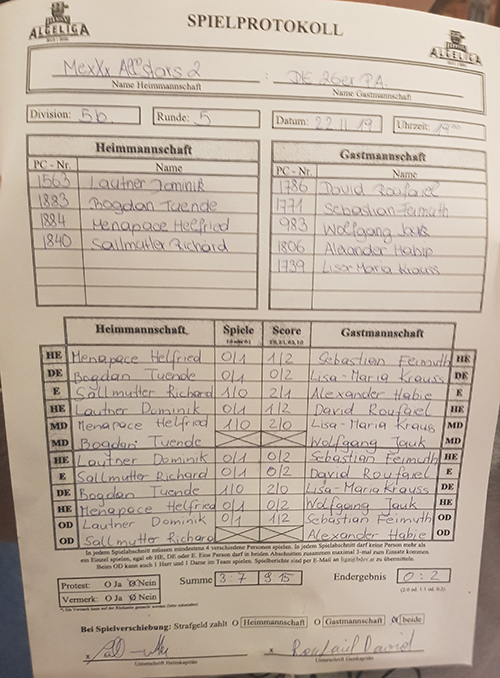 ALGELIGA
SPIELPROTOKOLL
ALGELIGA
MexXx Allstars 2 : DE 26er P.A.
Name Heimmannschaft Name Gastmannschaft
Division: 5b Runde: 5 Datum: 22.11.19 Uhrzeit: 19⁰⁰
Heimmannschaft Gastmannschaft
PC - Nr. Name PC - Nr. Name
1563 Lautner Dominik 1786 David Roufaiel
1883 Bogdan Tuende 1771 Sebastian Feimuth
1884 Menapace Helfried 983 Wolfgang Jauk
1840 Sallmutter Richard 1806 Alexander Habie
1739 Lisa Maria Krauss
Heimmannschaft Spiele Score Gastmannschaft
HE Menapace Helfried 0/1 1/2 Sebastian Feimuth HE
DE Bogdan Tuende 0/1 0/2 Lisa-Maria Krauss DE
E Sallmutter Richard 1/0 2/1 Alexander Habie E
HE Lautner Dominik 0/1 1/2 David Roufaiel HE
MD Menapace Helfried 1/0 2/0 Lisa-Maria Krauss MD
MD Bogdan Tuende Wolfgang Jauk MD
HE Lautner Dominik 0/1 0/2 Sebastian Feimuth HE
E Sallmutter Richard 0/1 0/2 David Roufaiel E
DE Bogdan Tuende 1/0 2/0 Lisa-Maria Krauss DE
HE Menapace Helfried 0/1 0/2 Wolfgang Jauk HE
OD Lautner Dominik 0/1 1/2 Sebastian Feimuth OD
OD Sallmutter Richard Alexander Habie OD
In jedem Spielabschnitt müssen mindestens 4 verschiedene Personen spielen. In jedem Spielabschnitt darf keine Person mehr als
ein Einzel spielen, egal ob HE, DE oder E. Eine Person darf in beiden Abschnitten zusammen maximal 3-mal zum Einsatz kommen
Beim OD kann auch 1 Herr und 1 Dame im Team spielen. Spielberichte sind per E-Mail an zu übermitteln.
Protest: O Ja Ø Nein Summe 3:7 9:15 Endergebnis 0:2
Vermerk: O Ja Ø Nein
Bei Spielverschiebung: Strafgeld zahlt O Heimmannschaft O Gastmannschaft beide
x x Roufaiel David
Unterschrift Heimkapitän Unterschrift Gastkapitän